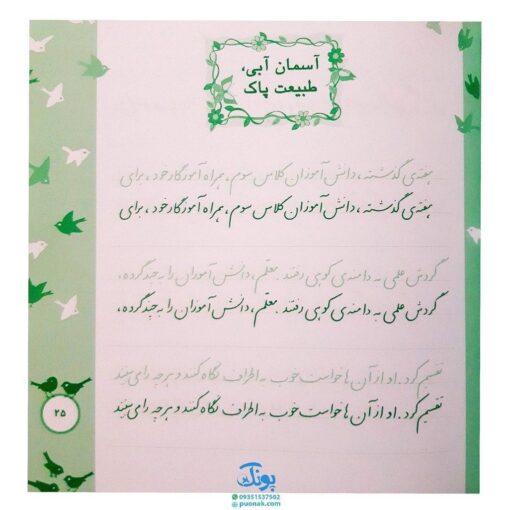 آسمان آبی،
طبیعت پاک
هفته‌ی گذشته، دانش‌آموزان کلاس سوم، همراه آموزگار خود، برای
هفته‌ی گذشته، دانش‌آموزان کلاس سوم، همراه آموزگار خود، برای
گردش علمی به دامنه‌ی کوهی رفتند. معلم، دانش‌آموزان را به چند گروه،
گردش علمی به دامنه‌ی کوهی رفتند. معلم، دانش‌آموزان را به چند گروه،
تقسیم کرد. او از آن‌ها خواست خوب به اطراف نگاه کنند و هر چه را می‌بینند
تقسیم کرد. او از آن‌ها خواست خوب به اطراف نگاه کنند و هر چه را می‌بینند
۲۵
پونک
09351537502
puonak.com